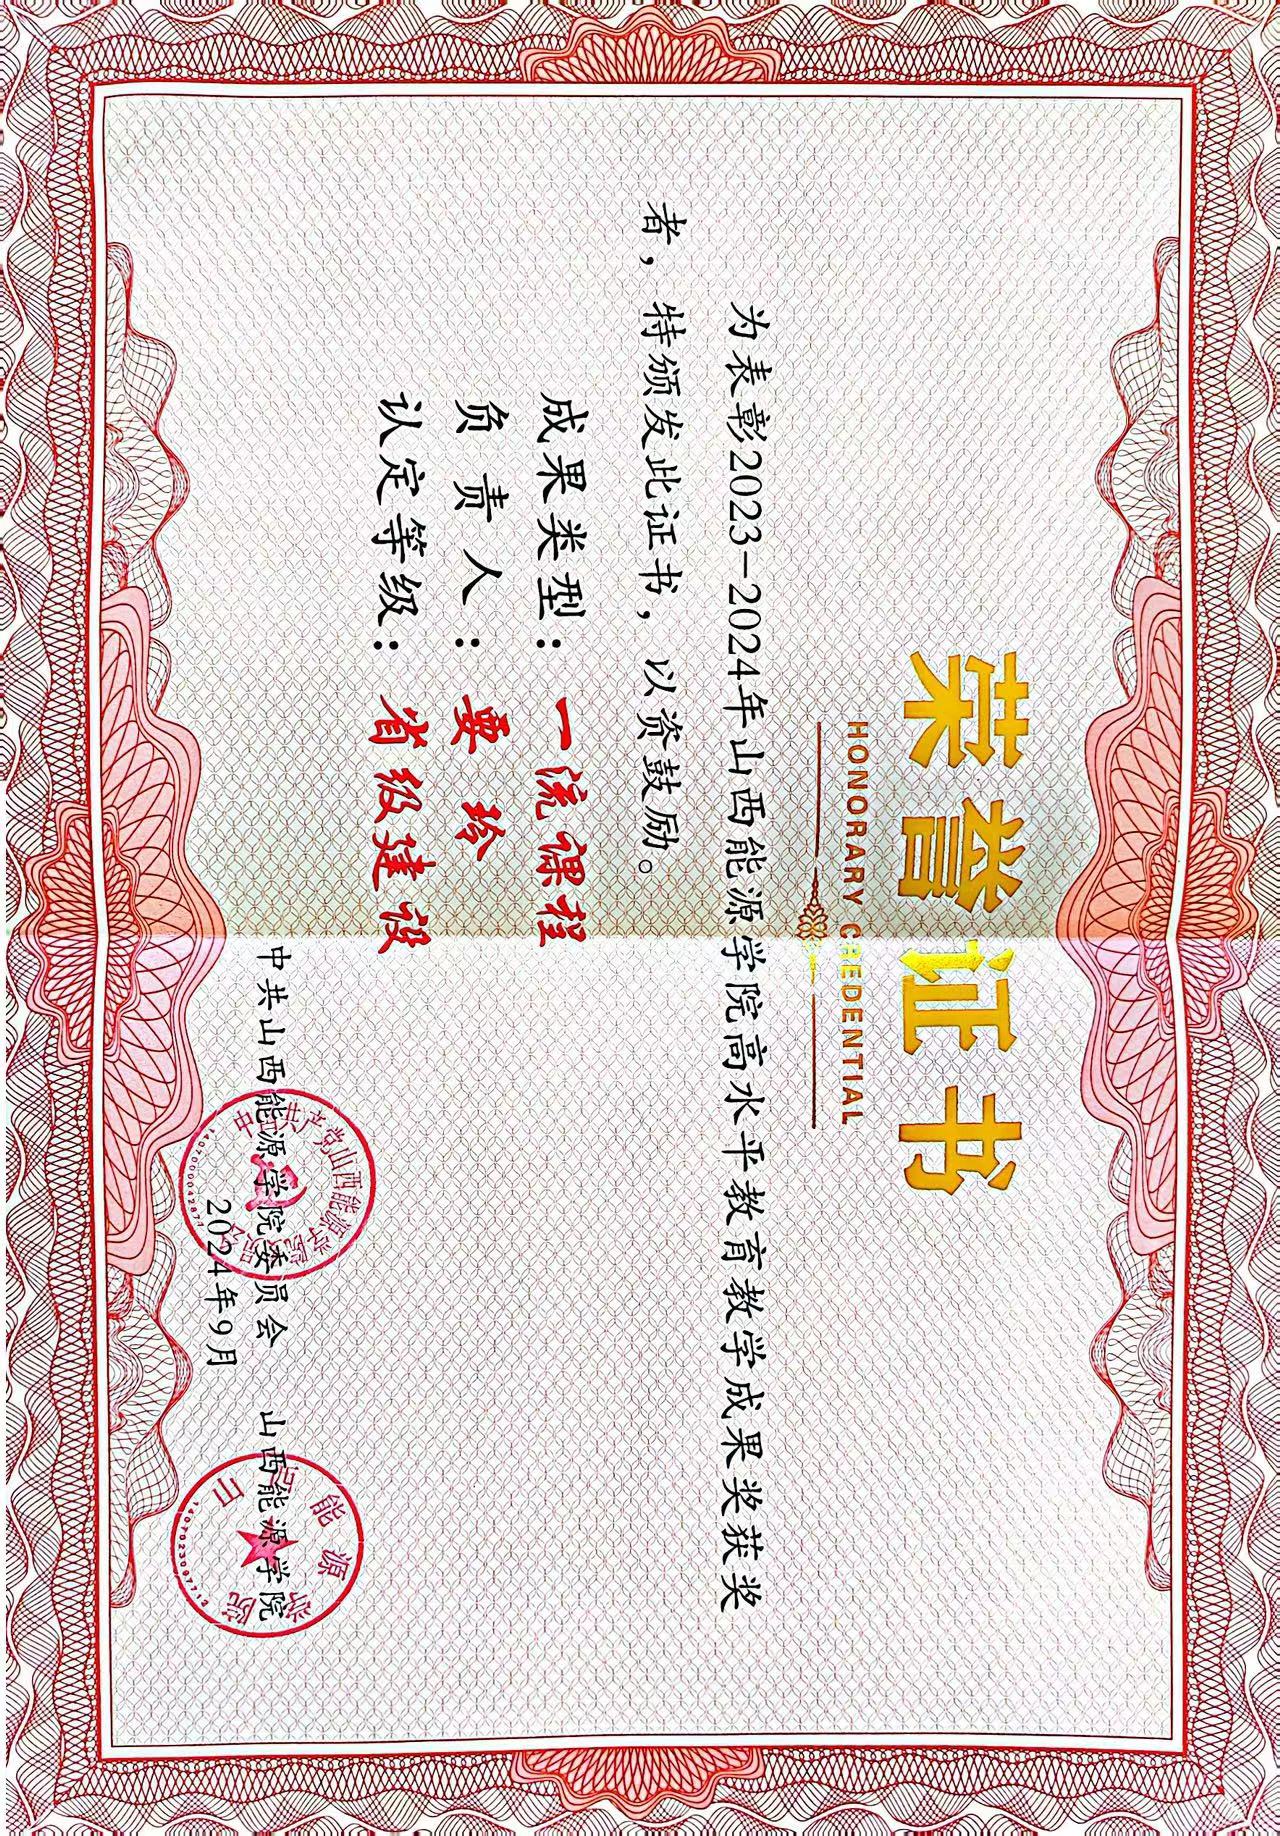 荣誉证书
HONORARY CREDENTIAL
为表彰2023-2024年山西能源学院高水平教育教学成果奖获奖
者，特颁发此证书，以资鼓励。
成果类型：一流课程
负责人：要玲
认定等级：省级建设
中共山西能源学院委员会 山西能源学院
2024年9月
中国共产党山西能源学院委员会
山西能源学院